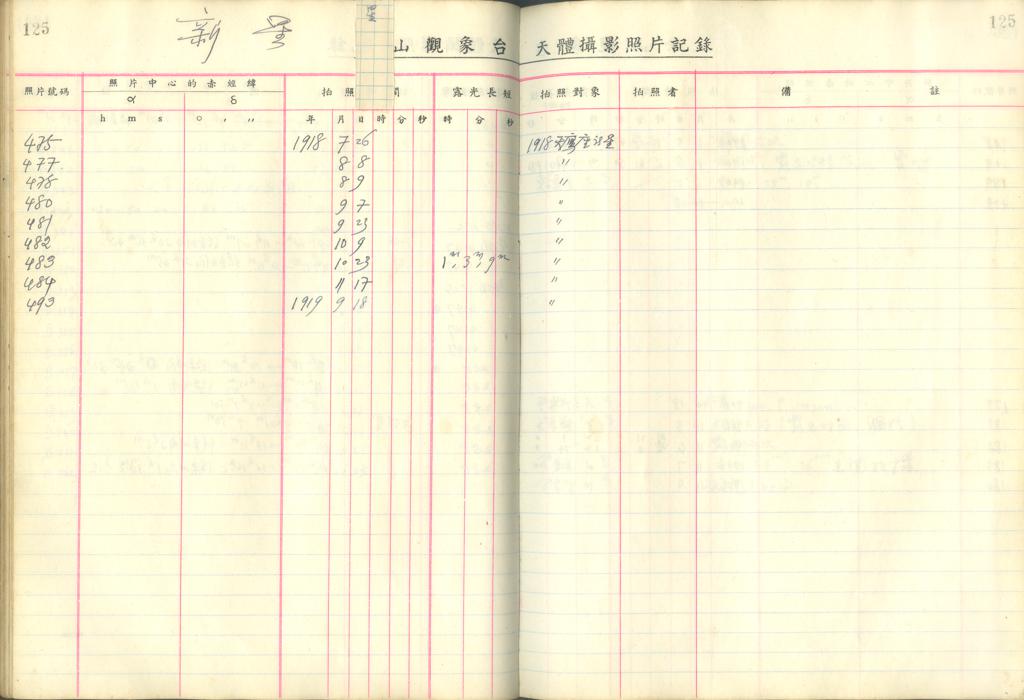 125
新星
星
125
山觀象台 天體攝影照片記錄
照片號碼 照片中心的赤經緯 拍照 間 露光長短 拍照對象 拍照者 備 註
α δ
h m s o , ,, 年 月 日 時 分 秒 時 分 秒
475 1918 7 26 1918天鷹座新星
477. 8 8 〃
478 8 9 〃
480 9 7 〃
481 9 23 〃
482 10 9 〃
483 10 23 1m, 3m, 9m 〃
484 11 17 〃
493 1919 9 18 〃